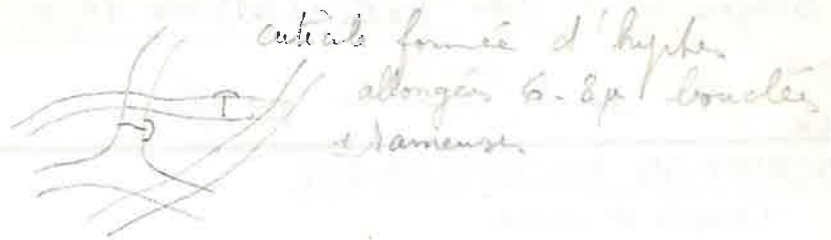 cuticule formée d'hyphes
allongées 6-8µ bouclées
± rameuses